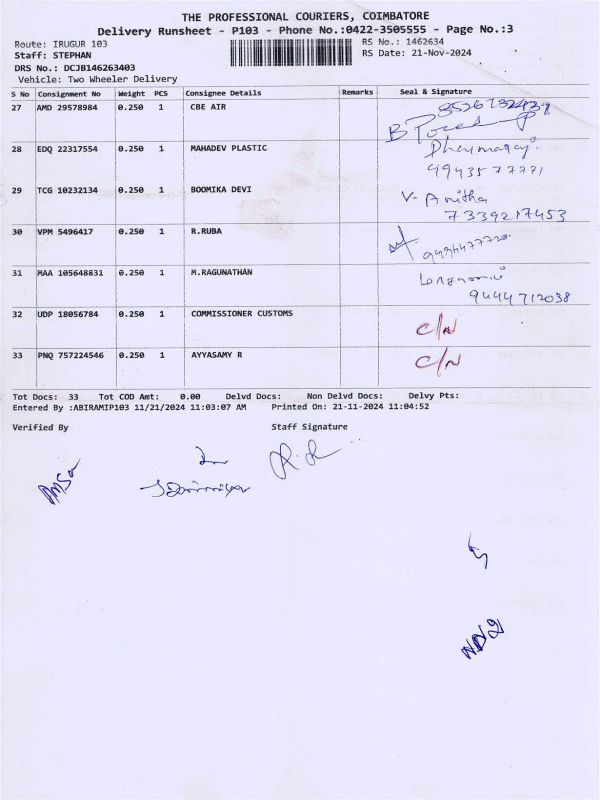 THE PROFESSIONAL COURIERS, COIMBATORE
Delivery Runsheet - P103 - Phone No.:0422-3505555 - Page No.:3
Route: IRUGUR 103 RS No.: 1462634
Staff: STEPHAN RS Date: 21-Nov-2024
DRS No.: DCJB146263403
Vehicle: Two Wheeler Delivery
S No Consignment No Weight PCS Consignee Details Remarks Seal & Signature
27 AMD 29578984 0.250 1 CBE AIR
28 EDQ 22317554 0.250 1 MAHADEV PLASTIC
29 TCG 10232134 0.250 1 BOOMIKA DEVI V. Anitha
7339217453
30 VPM 5496417 0.250 1 R.RUBA
31 MAA 105648831 0.250 1 M.RAGUNATHAN
9444712038
32 UDP 18056784 0.250 1 COMMISSIONER CUSTOMS C/N
33 PNQ 757224546 0.250 1 AYYASAMY R C/N
Tot Docs: 33 Tot COD Amt: 0.00 Delvd Docs: Non Delvd Docs: Delvy Pts:
Entered By :ABIRAMIP103 11/21/2024 11:03:07 AM Printed On: 21-11-2024 11:04:52
Verified By Staff Signature